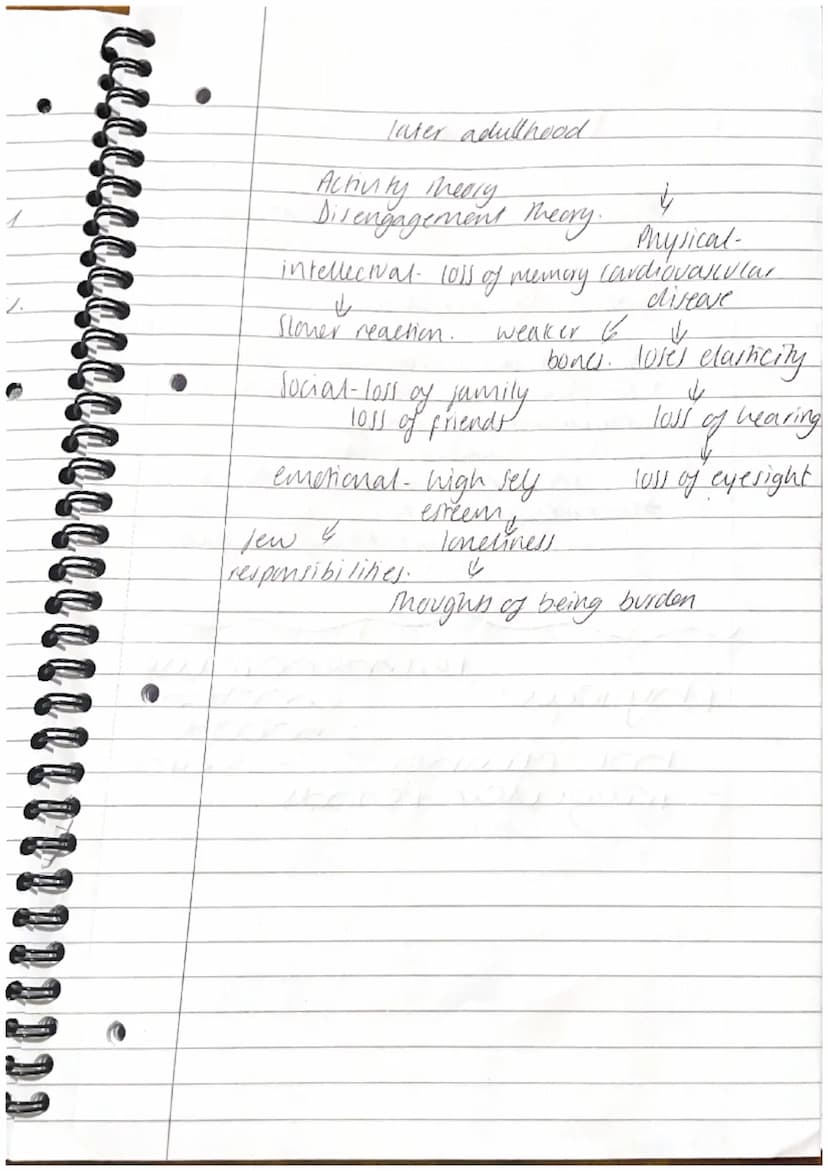 later adulthood
Activity Theory
Disengagement Theory. ↓
Physical-
intellectual- loss of memory cardiovascular
↓ disease
Slower reaction. weaker ↙ ↓
bones. loses elasticity
Social-loss of family ↓
loss of friends loss of hearing
↓
emotional- high self loss of eyesight
esteem ↓
few ↙ loneliness
responsibilities. ↓
Thoughts of being burden